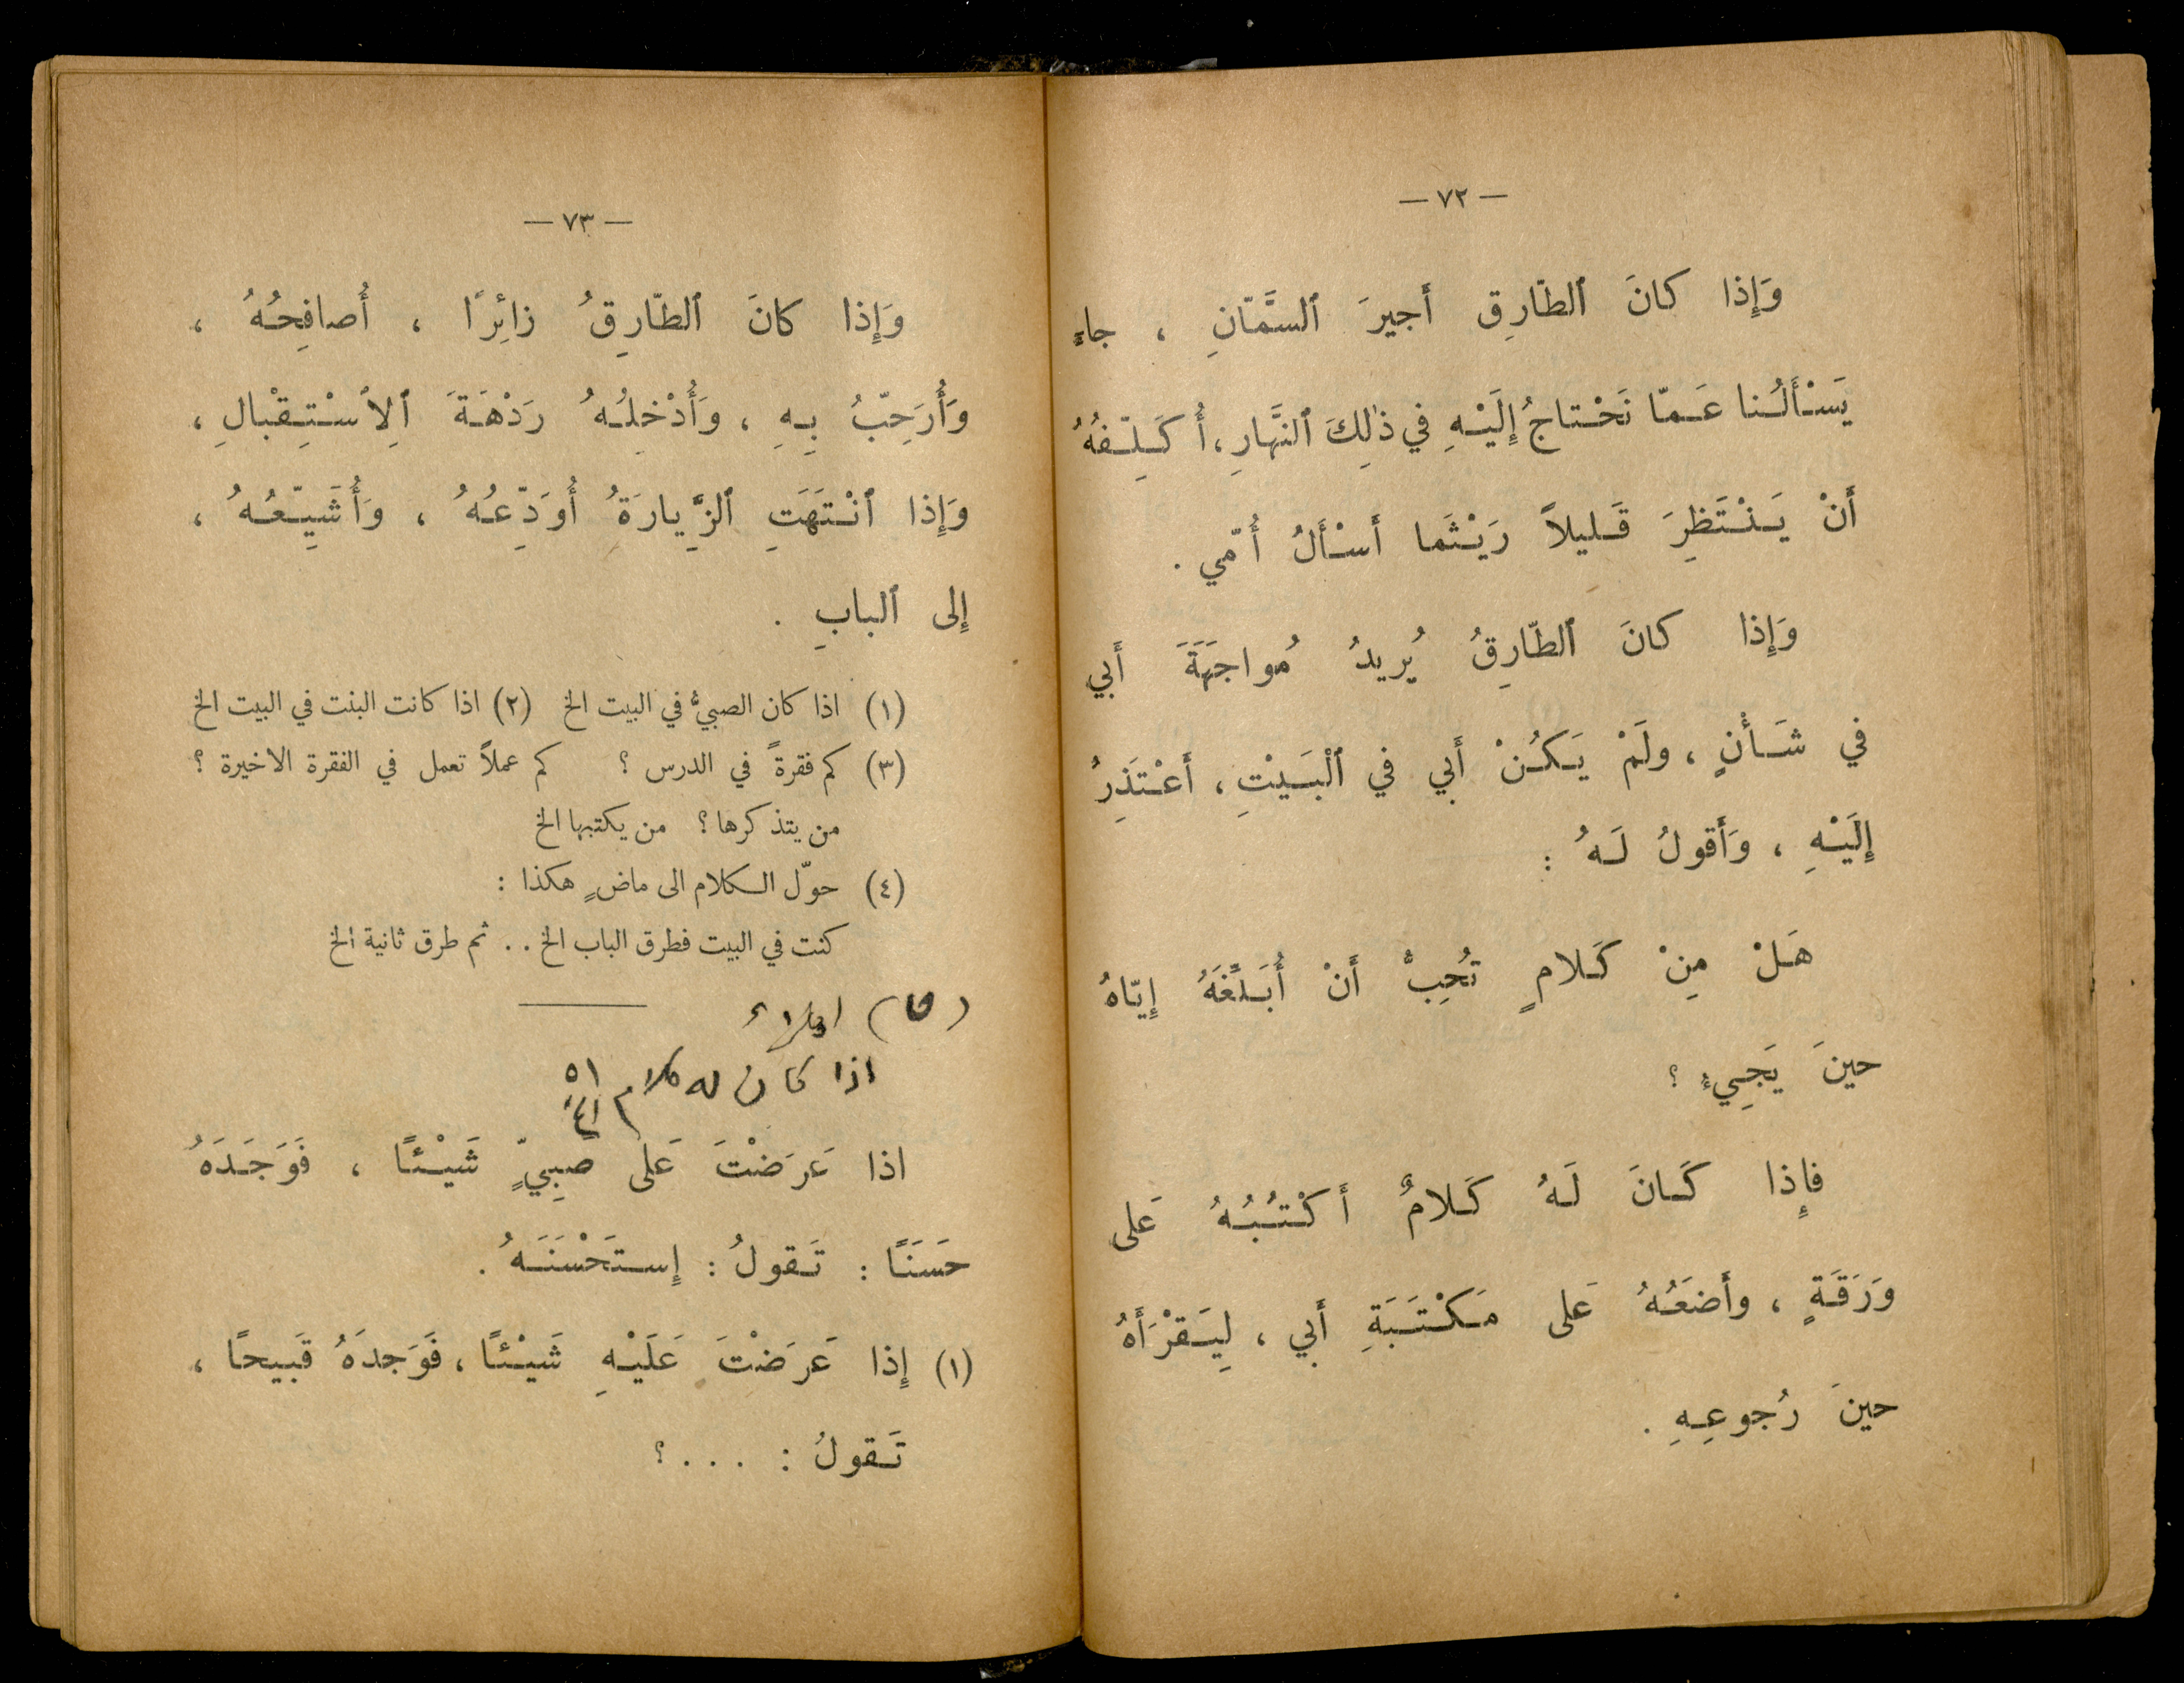 — ٧٢ —
وَإِذا كانَ ٱلطّارِق أَجيرَ ٱلسَّمّانِ ، جاءَ
يَسْأَلُنا عَمّا نَحْتاجُ إِلَيْهِ في ذٰلِكَ ٱلنَّهارِ ، أُكَلِّفُهُ
أَنْ يَنْتَظِرَ قَليلاً رَيْثَما أَسْأَلُ أُمّي .
وَإِذا كانَ ٱلطّارِقُ يُريدُ مُواجَهَةَ أَبي
في شَأْنٍ ، ولَمْ يَكُنْ أَبي في ٱلْبَيْتِ ، أَعْتَذِرُ
إِلَيْهِ ، وَأَقولُ لَهُ :
هَلْ مِنْ كَلامٍ تُحِبُّ أَنْ أُبَلِّغَهُ إِيّاهُ
حينَ يَجِيءُ ؟
فإِذا كَانَ لَهُ كَلامٌ أَكْتُبُهُ عَلى
وَرَقَةٍ ، وأَضَعُهُ عَلى مَكْتَبَةِ أَبي ، لِيَقْرَأَهُ
حينَ رُجوعِهِ .
— ٧٣ —
وَإِذا كانَ ٱلطّارِقُ زائِرًا ، أُصافِحُهُ ،
وَأُرَحِّبُ بِهِ ، وَأُدْخِلُهُ رَدْهَةَ ٱلِٱسْتِقْبالِ ،
وَإِذا ٱنْتَهَتِ ٱلزِّيارَةُ أُوَدِّعُهُ ، وَأُشَيِّعُهُ ،
إِلى ٱلبابِ .
(١) اذا كان الصبيُّ في البيت الخ (٢) اذا كانت البنت في البيت الخ
(٣) كم فقرةً في الدرس ؟ كم عملاً تعمل في الفقرة الاخيرة ؟
من يتذكرها ؟ من يكتبها الخ
(٤) حوّل الكلام الى ماضٍ هكذا :
كنت في البيت فطرق الباب الخ . . ثم طرق ثانية الخ
املاء
اذا كان له كلام
اذا عَرَضْتَ عَلى صَبِيٍّ شَيْئًا ، فَوَجَدَهُ
حَسَنًا : تَقولُ : إِستَحْسَنَهُ .
(١) إِذا عَرَضْتَ عَلَيْهِ شَيْئًا ، فَوَجدَهُ قَبيحًا ،
تَقولُ : . . . ؟